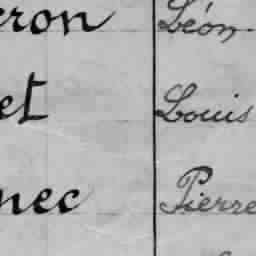 eron Léon
et Louis
nec Pierre